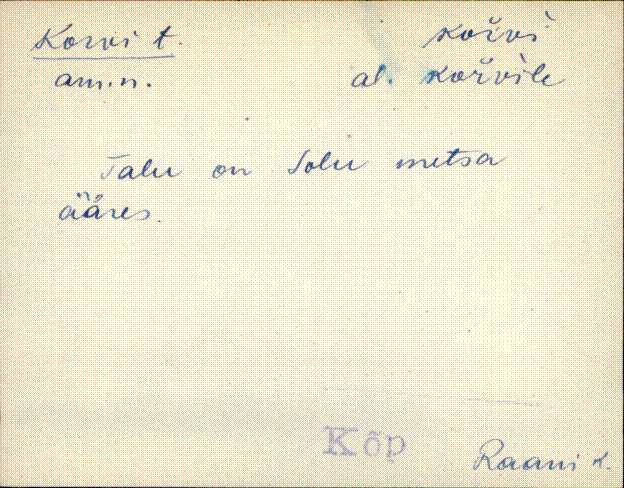 Korvi t. korvi
am.n. al. korvile
Talu on Solu metsa
ääres.
Kõp
Raani k.